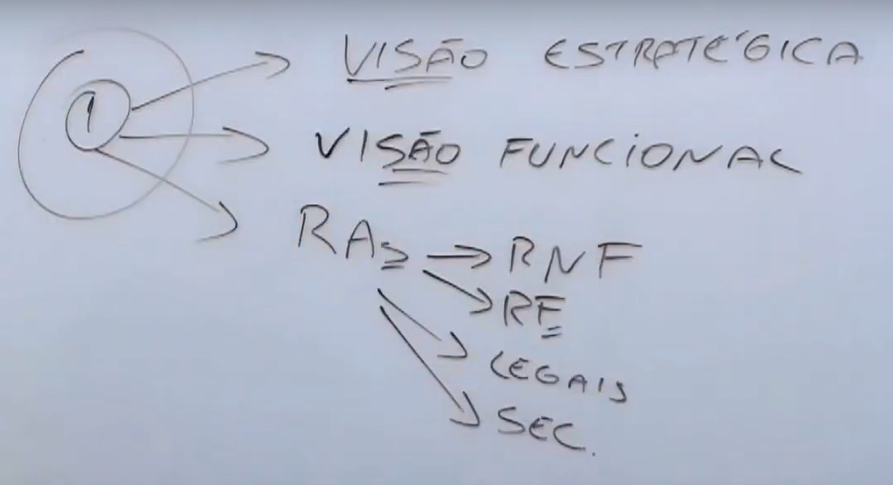 1
VISÃO ESTRATÉGICA
VISÃO FUNCIONAL
RAs → RNF
RF
LEGAIS
SEC.